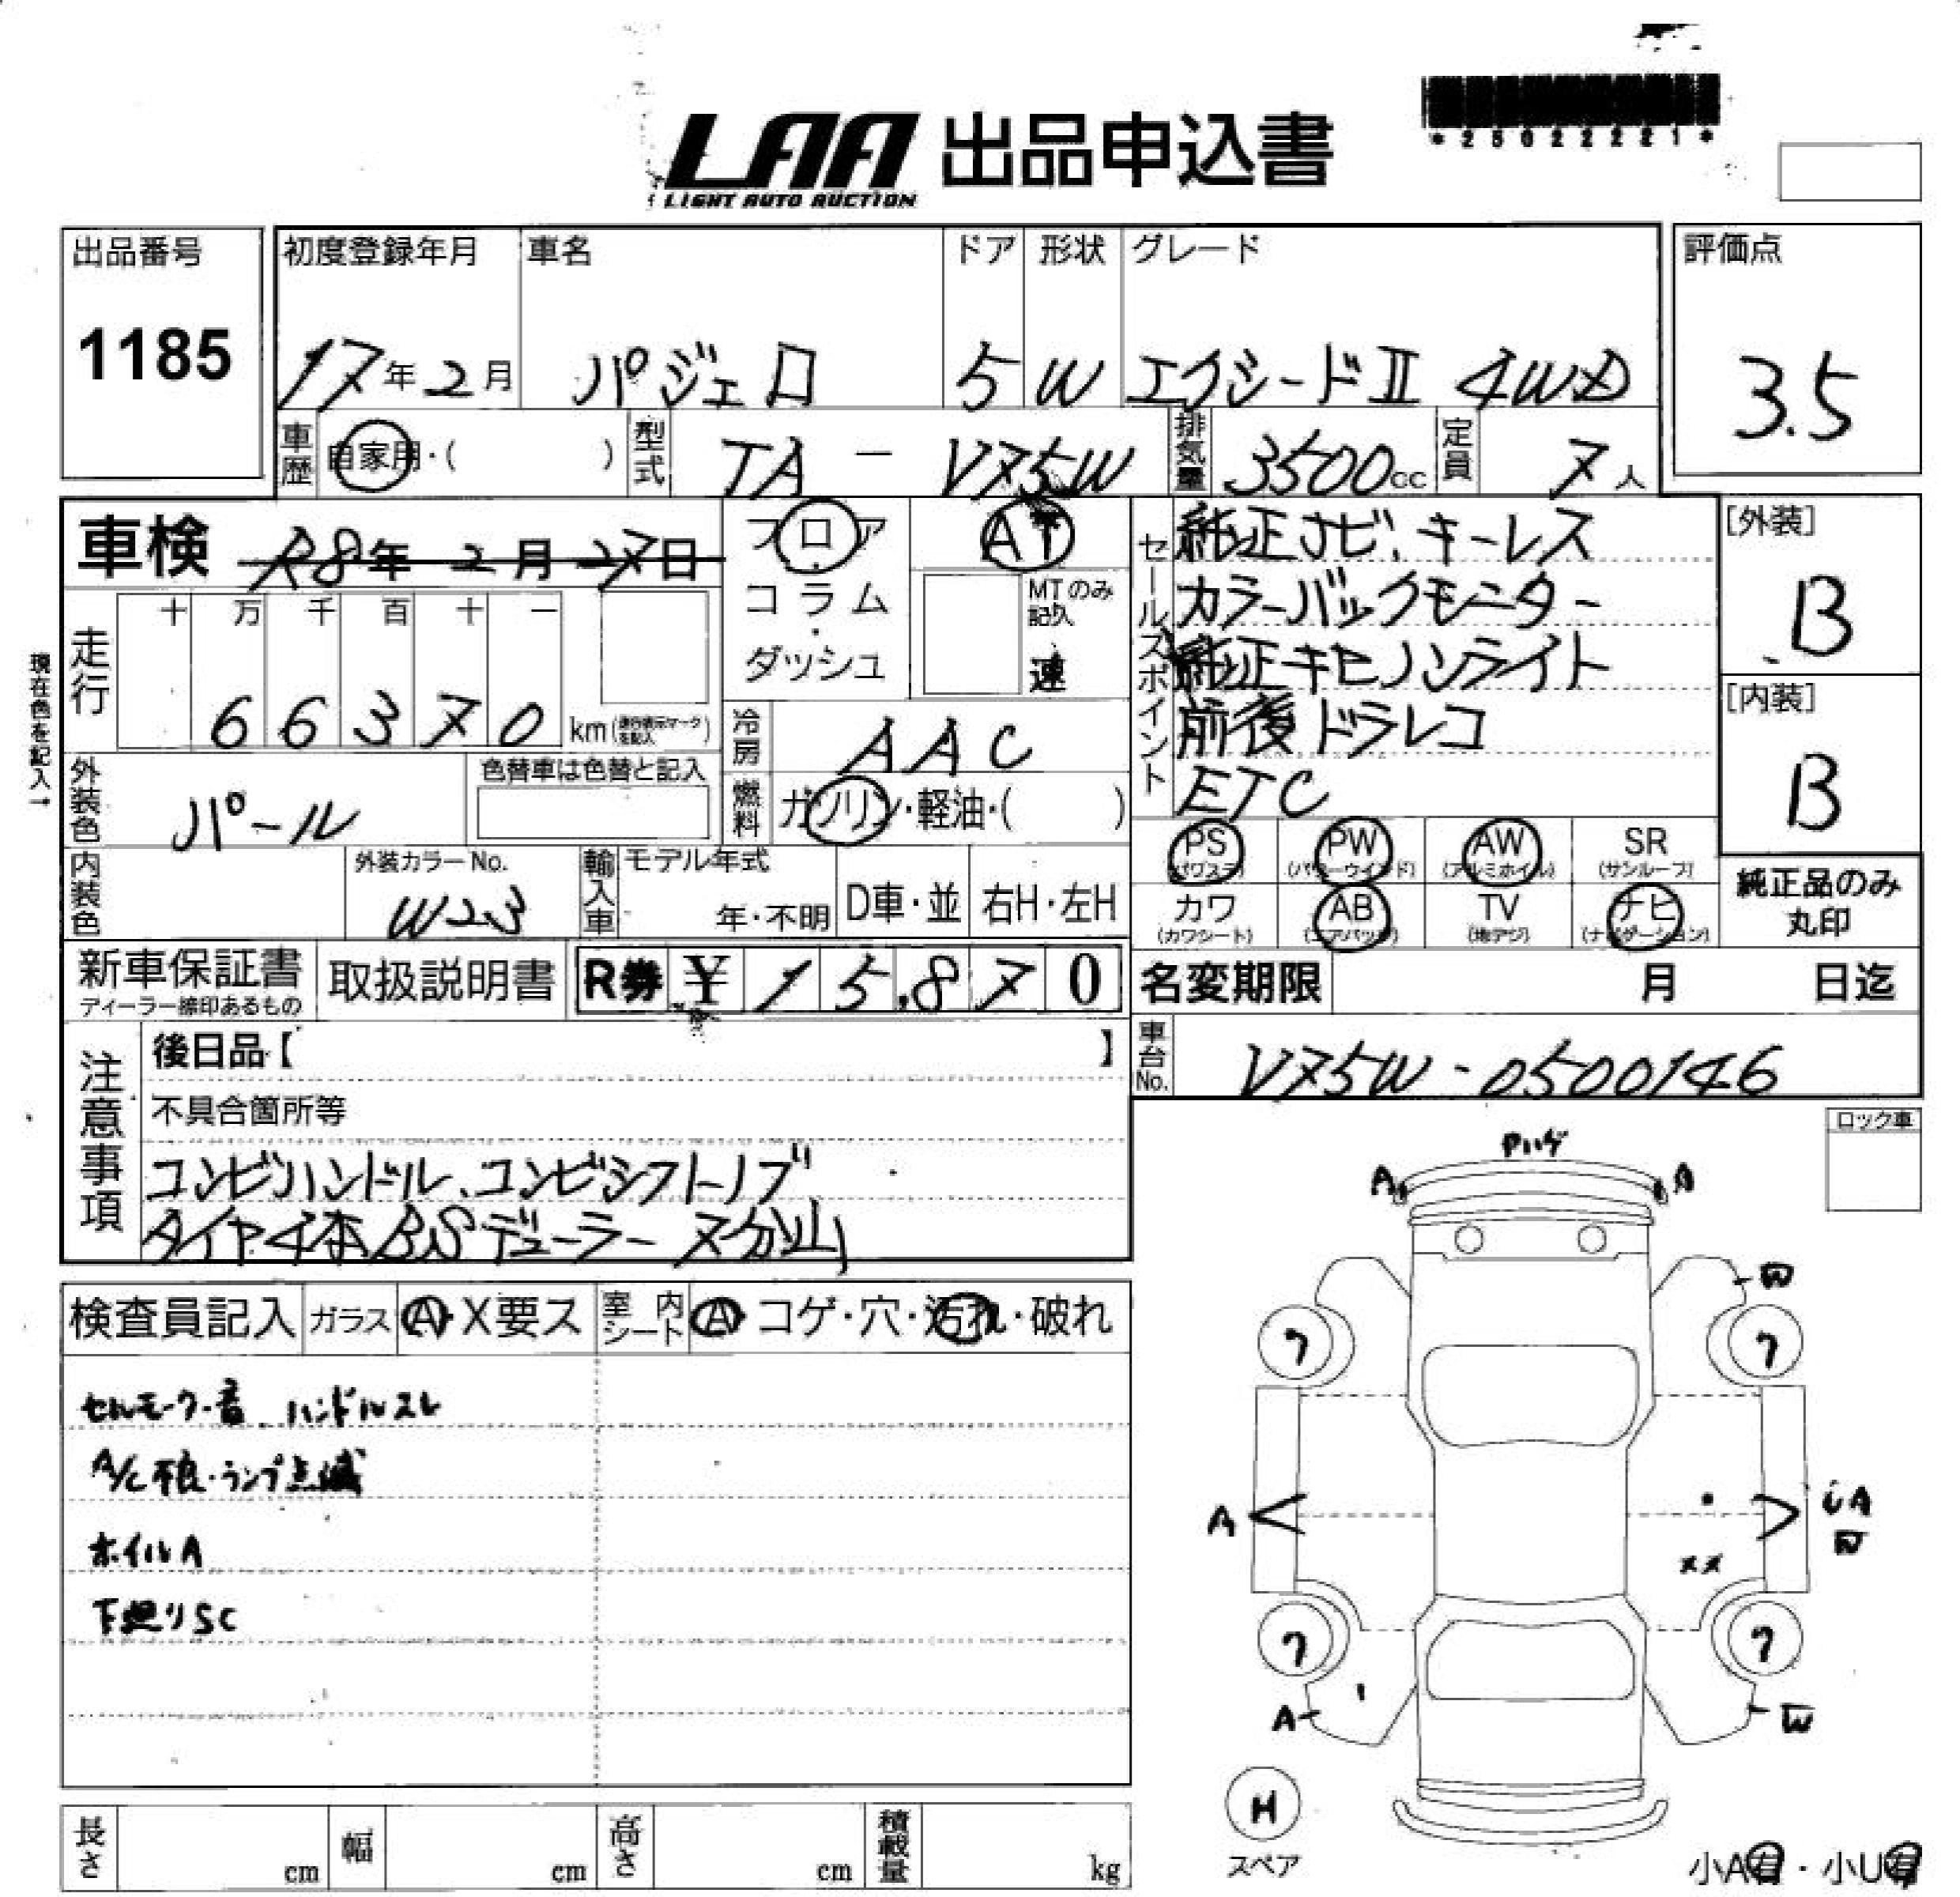 *25022221*
LAA 出品申込書
LIGHT AUTO AUCTION
出品番号 初度登録年月 車名 ドア 形状 グレード 評価点
1185 17年2月 パジェロ 5 W エクシードⅡ 4WD 3.5
車歴 自家用・( ) 型式 TA - V75W 排気量 3500cc 定員 7人
車検 R8年2月27日 フロア・コラム・ダッシュ AT
MTのみ記入 速
セールスポイント
純正ナビ、キーレス
カラーバックモニター
純正キセノンライト
前後ドラレコ
ETC
[外装]
B
[内装]
B
現在色を記入→
走行 十 万 千 百 十 一
66370 km(走行表示マークを記入)
冷房 AAC
外装色 パール 色替車は色替と記入
燃料 ガソリン・軽油・( )
PS (パワステ) PW (パワーウインド) AW (アルミホイル) SR (サンルーフ)
カワ (カワシート) AB (エアバッグ) TV (地デジ) ナビ (ナビゲーション)
純正品のみ
丸印
内装色 外装カラーNo. W23 輸入車 モデル年式 年・不明 D車・並 右H・左H
新車保証書 取扱説明書 R券 ¥ 15,870
ディーラー捺印あるもの
名変期限 月 日迄
車台No. V75W-0500146
注意事項
後日品【 】
不具合箇所等
コンビハンドル、コンビシフトノブ
タイヤ4本BSデューラー 7分山
ロック車
Pハゲ
A A
W
7 7
A A
W
XX
7 7
A W
H
スペア
小A有・小U有
検査員記入 ガラス A・X要ス 室内シート A・コゲ・穴・汚れ・破れ
セルモーター音 ハンドルスレ
A/C不良・ランプ点滅
ホイルA
下廻りSC
長さ cm 幅 cm 高さ cm 積載量 kg